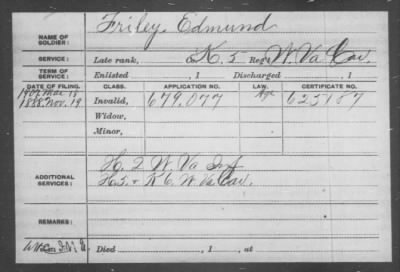 NAME OF SOLDIER: Friley Edmund
SERVICE: Late rank, K. 5 Reg't W. Va Cav.
TERM OF SERVICE: Enlisted , 1 Discharged , 1
DATE OF FILING. CLASS. APPLICATION NO. LAW. CERTIFICATE NO.
1907 Mar 18 Age
1888, Nov. 19 Invalid, 679.077 625187
Widow,
Minor,
ADDITIONAL SERVICES: H. 2 W. Va Inf
H. 5 & K 6. W Va Cav.
REMARKS:
Died , 1 , at